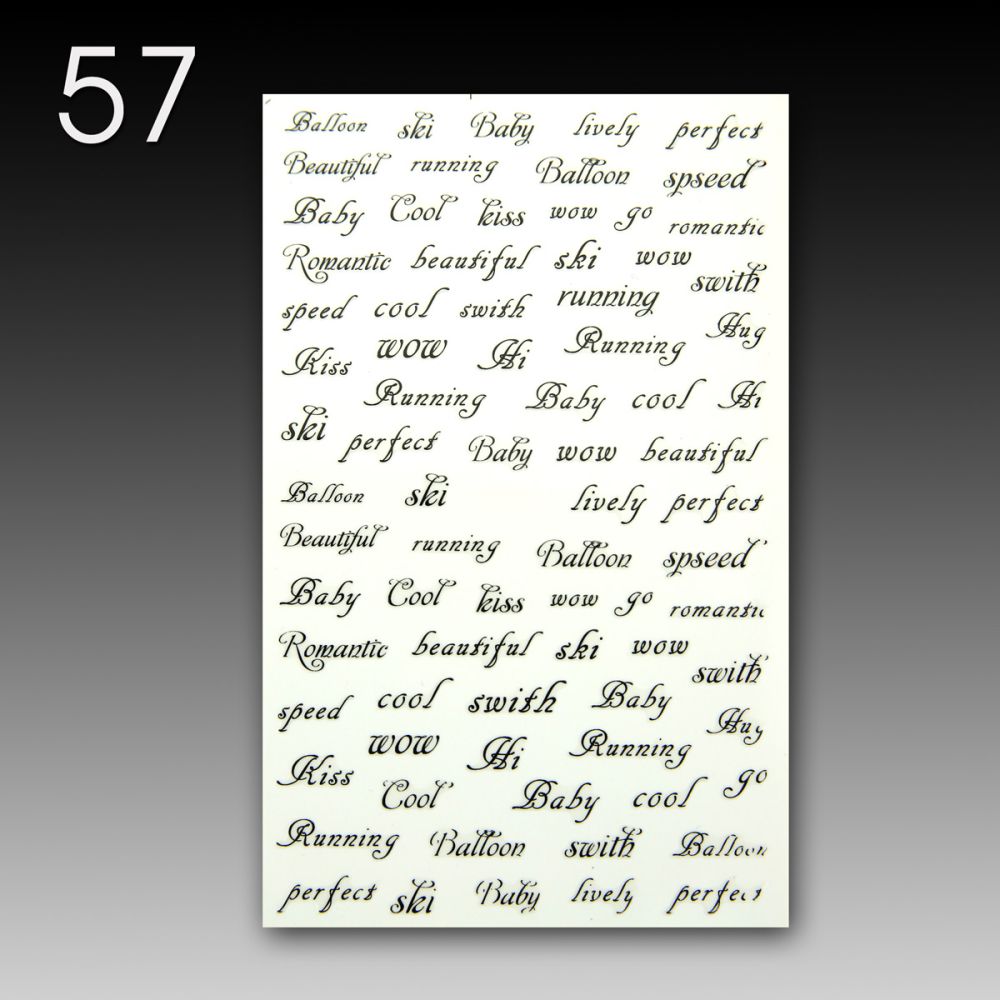 57
Balloon ski Baby lively perfect
Beautiful running Balloon spseed
Baby Cool kiss wow go romantic
Romantic beautiful ski wow swith
speed cool swith running Hug
Kiss wow Hi Running
Running Baby cool Hi
ski perfect Baby wow beautiful
Balloon ski lively perfect
Beautiful running Balloon spseed
Baby Cool kiss wow go romantic
Romantic beautiful ski wow swith
speed cool swith Baby Hug
Kiss wow Hi Running go
Cool Baby cool
Running Balloon swith Balloon
perfect ski Baby lively perfect